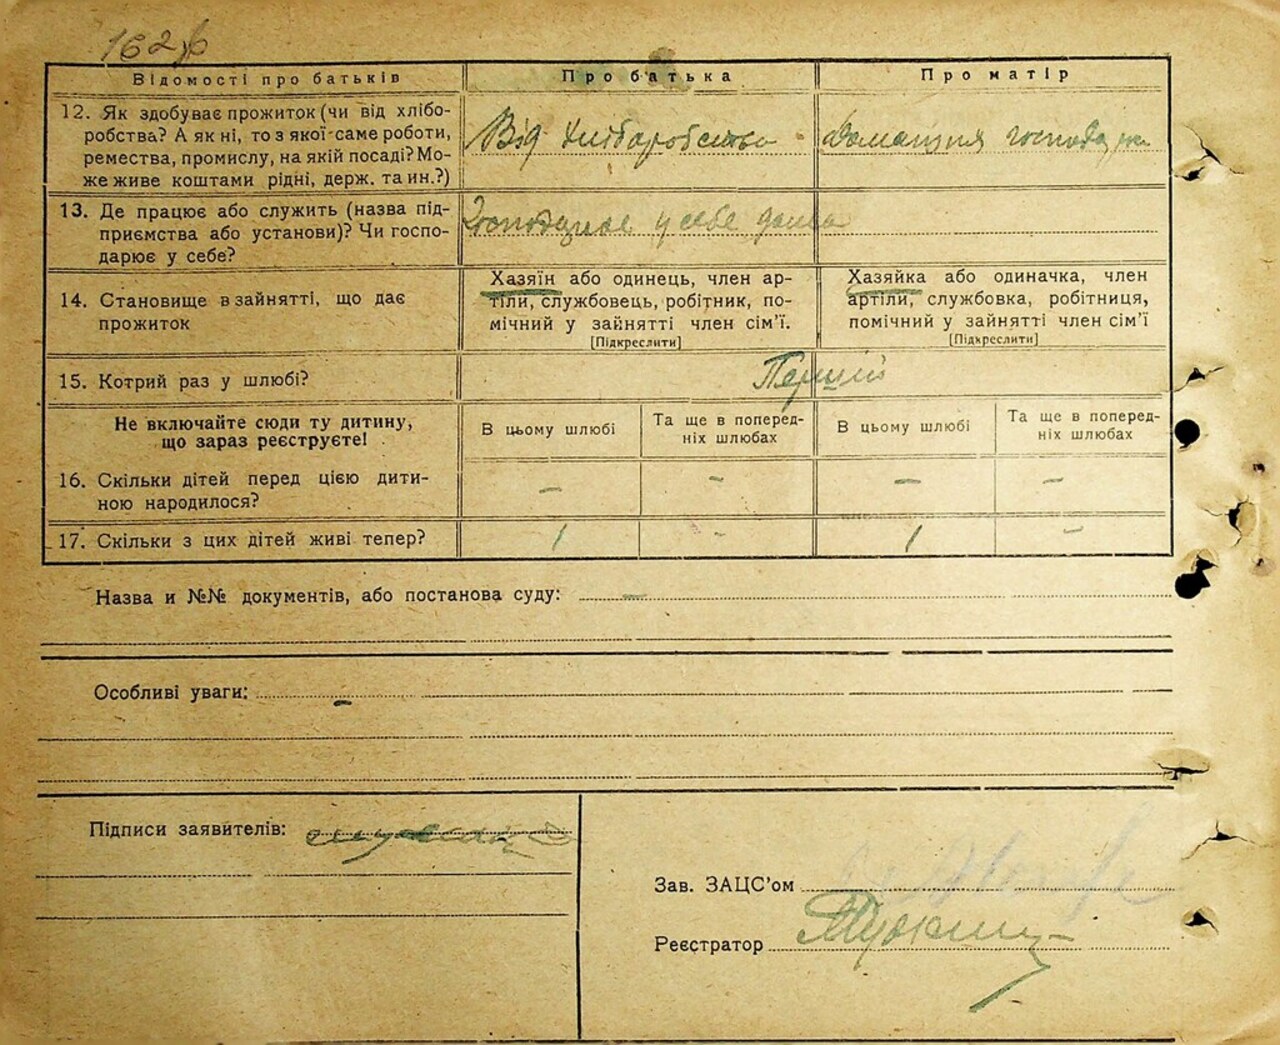 162
Відомості про батьків
Про батька
Про матір
12. Як здобуває прожиток (чи від хлібо-
робства? А як ні, то з якої саме роботи,
ремества, промислу, на якій посаді? Мо-
же живе коштами рідні, держ. та ин.?)
Від хліборобства
Домашня
13. Де працює або служить (назва під-
приємства або установи)? Чи госпо-
дарює у себе?
у себе дома
14. Становище в зайнятті, що дає
прожиток
Хазяїн або одинець, член ар-
тіли, службовець, робітник, по-
мічний у зайнятті член сім’ї.
[Підкреслити]
Хазяйка або одиначка, член
артіли, службовка, робітниця,
помічний у зайнятті член сім’ї
[Підкреслити]
15. Котрий раз у шлюбі?
Перший
Не включайте сюди ту дитину,
що зараз реєструєте!
В цьому шлюбі
Та ще в поперед-
ніх шлюбах
В цьому шлюбі
Та ще в поперед-
ніх шлюбах
16. Скільки дітей перед цією дити-
ною народилося?
– – – –
17. Скільки з цих дітей живі тепер?
1 - 1 -
Назва и №№ документів, або постанова суду: –
Особливі уваги: -
Підписи заявителів:
Зав. ЗАЦС’ом
Реєстратор